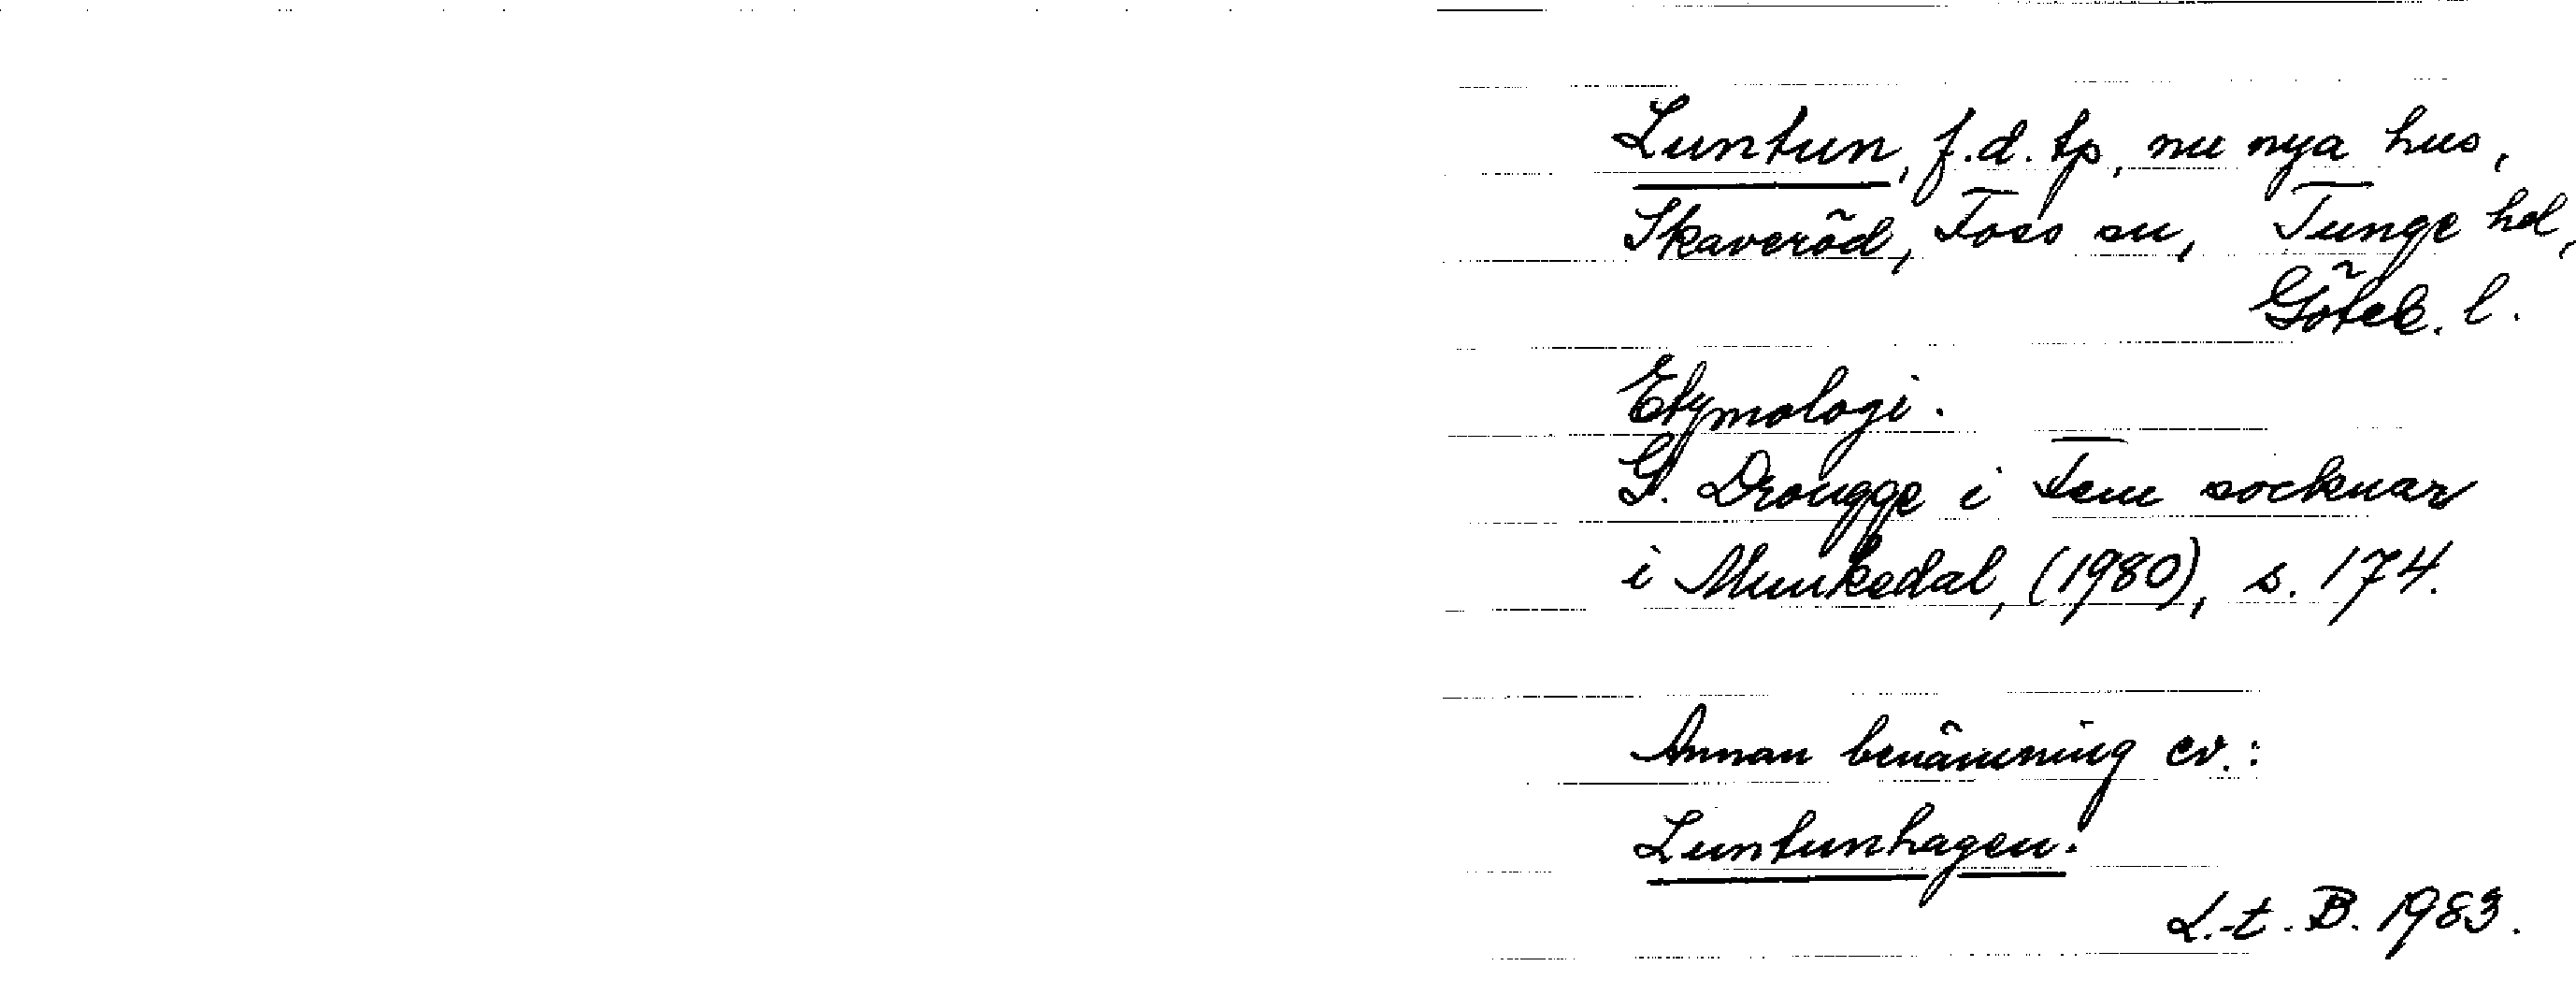 Luntun, f.d. tp, nu nya hus,
Skaveröd, Foss sn, Tunge hd,
Göteb. l.
Etymologi.
G. Drougge i Fem socknar
i Munkedal, (1980), s. 174.
Annan benämning ev.:
Luntunhagen.
L.-t. B. 1983.